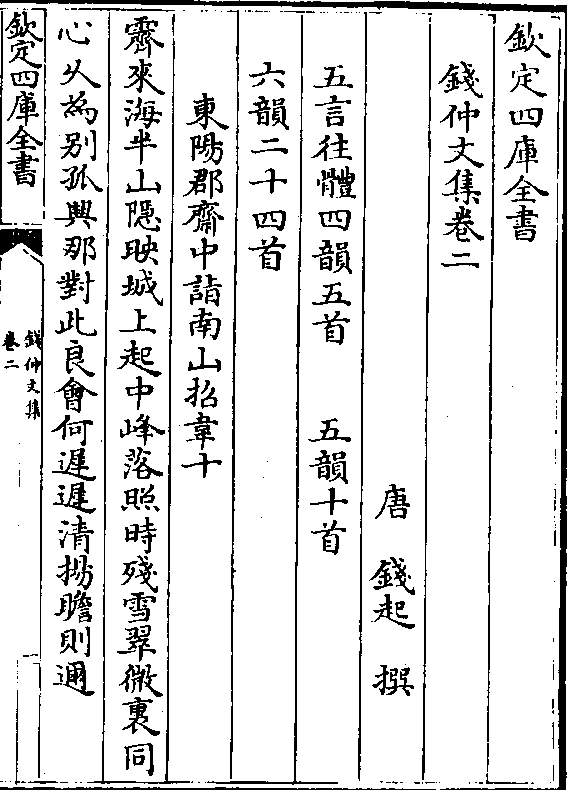 欽定四庫全書
錢仲文集卷二
唐 錢起 撰
五言往體四韻五首 五韻十首
六韻二十四首
東陽郡齋中詣南山招韋十
霽來海半山隱映城上起中峰落照時殘雪翠微裏同
心久為別孤興那對此良會何遲遲清揚瞻則邇
欽定四庫全書
錢仲文集
卷二